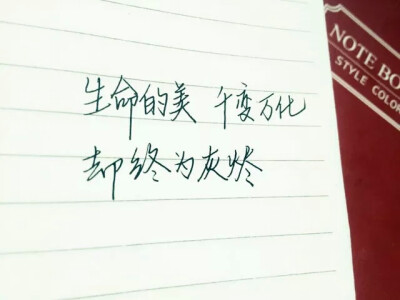 生命的美 千变万化
却终为灰烬
NOTE BO
STYLE COLOR